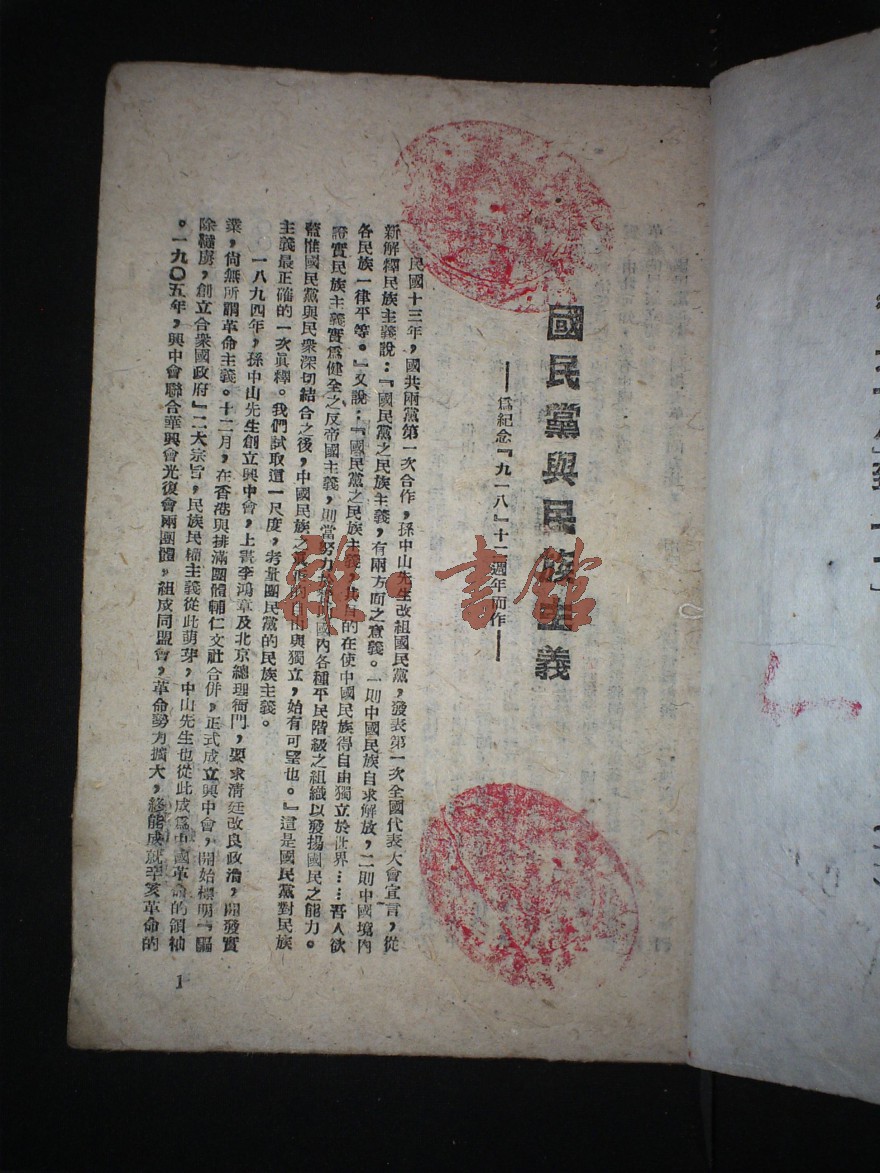 國民黨與民族主義
——爲紀念『九一八』十二週年而作——
民國十三年，國共兩黨第一次合作，孫中山先生改組國民黨，發表第一次全國代表大會宣言，從
新解釋民族主義說：『國民黨之民族主義，有兩方面之意義。一則中國民族自求解放，二則中國境內
各民族一律平等。』又說：『國民黨之民族主義，其目的在使中國民族得自由獨立於世界……吾人欲
證實民族主義實爲健全之反帝國主義，則當努力 國內各種平民階級之組織以發揚國民之能力。
蓋惟國民黨與民衆深切結合之後，中國民族之眞正的自由與獨立，始有可望也。』這是國民黨對民族
主義最正確的一次眞釋。我們試取這一尺度，考量國民黨的民族主義。
一八九四年，孫中山先生創立興中會，上書李鴻章及北京總理衙門，要求清廷改良政治，開發實
業，尙無所謂革命主義。十二月，在香港與排滿團體輔仁文社合併，正式成立興中會，開始標明『驅
除韃虜，創立合衆國政府』二大宗旨，民族民權主義從此萌芽，中山先生也從此成爲中國革命的領袖
。一九〇五年，興中會聯合華興會光復會兩團體，組成同盟會，革命勢力擴大，終能成就辛亥革命的
1
雜書館